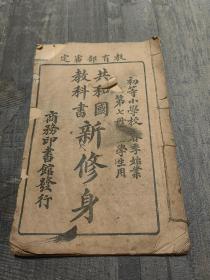 教育部審定
初等小學校 春季始業
第七册 學生用
共和國
教科書
新修身
商務印書館發行